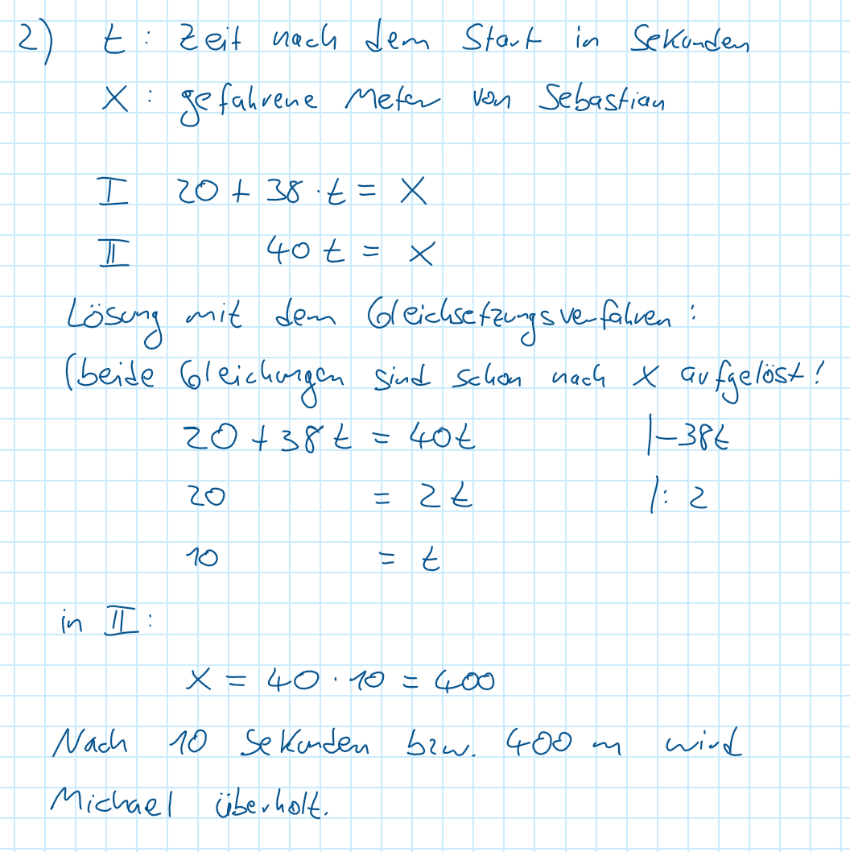 2) t : Zeit nach dem Start in Sekunden
x : gefahrene Meter von Sebastian
I 20 + 38 · t = x
II 40 t = x
Lösung mit dem Gleichsetzungsverfahren:
(beide Gleichungen sind schon nach x aufgelöst!
20 + 38 t = 40t |-38t
20 = 2 t |: 2
10 = t
in II:
x = 40 · 10 = 400
Nach 10 Sekunden bzw. 400 m wird
Michael überholt.